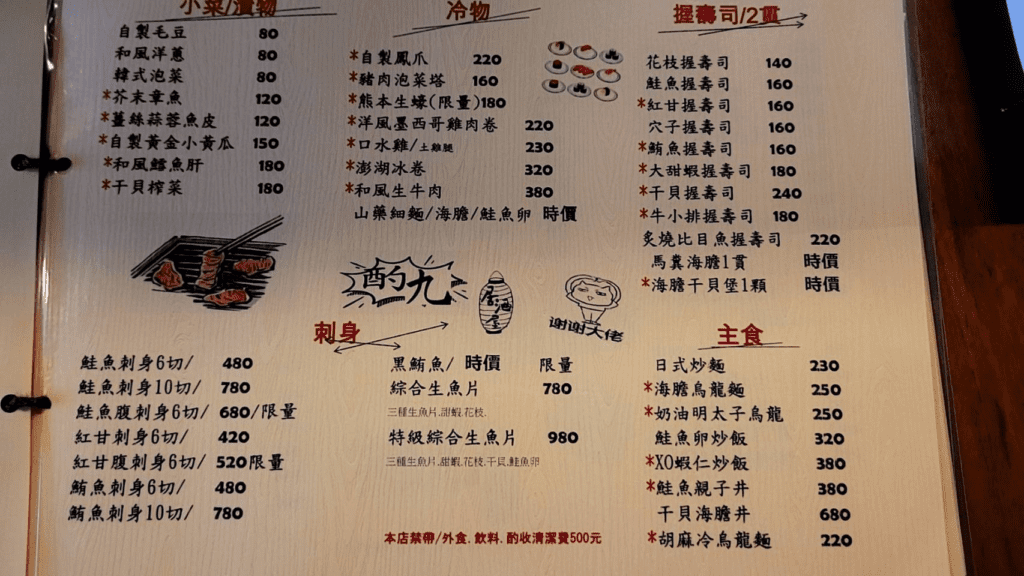 小菜/漬物
自製毛豆 80
和風洋蔥 80
韓式泡菜 80
*芥末章魚 120
*薑絲蒜蓉魚皮 120
*自製黃金小黃瓜 150
*和風鱈魚肝 180
*干貝榨菜 180
冷物
*自製鳳爪 220
*豬肉泡菜塔 160
*熊本生蠔(限量)180
*洋風墨西哥雞肉卷 220
*口水雞/土雞腿 230
*澎湖冰卷 320
*和風生牛肉 380
山藥細麵/海膽/鮭魚卵 時價
握壽司/2貫
花枝握壽司 140
鮭魚握壽司 160
*紅甘握壽司 160
穴子握壽司 160
*鮪魚握壽司 160
*大甜蝦握壽司 180
*干貝握壽司 240
*牛小排握壽司 180
炙燒比目魚握壽司 220
馬糞海膽1貫 時價
*海膽干貝堡1顆 時價
酌九
居酒屋
谢谢大佬
刺身
鮭魚刺身6切/ 480
鮭魚刺身10切/ 780
鮭魚腹刺身6切/ 680/限量
紅甘刺身6切/ 420
紅甘腹刺身6切/ 520限量
鮪魚刺身6切/ 480
鮪魚刺身10切/ 780
黑鮪魚/ 時價 限量
綜合生魚片 780
三種生魚片.甜蝦.花枝.
特級綜合生魚片 980
三種生魚片.甜蝦.花枝.干貝.鮭魚卵
主食
日式炒麵 230
*海膽烏龍麵 250
*奶油明太子烏龍 250
鮭魚卵炒飯 320
*XO蝦仁炒飯 380
*鮭魚親子丼 380
干貝海膽丼 680
*胡麻冷烏龍麵 220
本店禁帶/外食.飲料.酌收清潔費500元